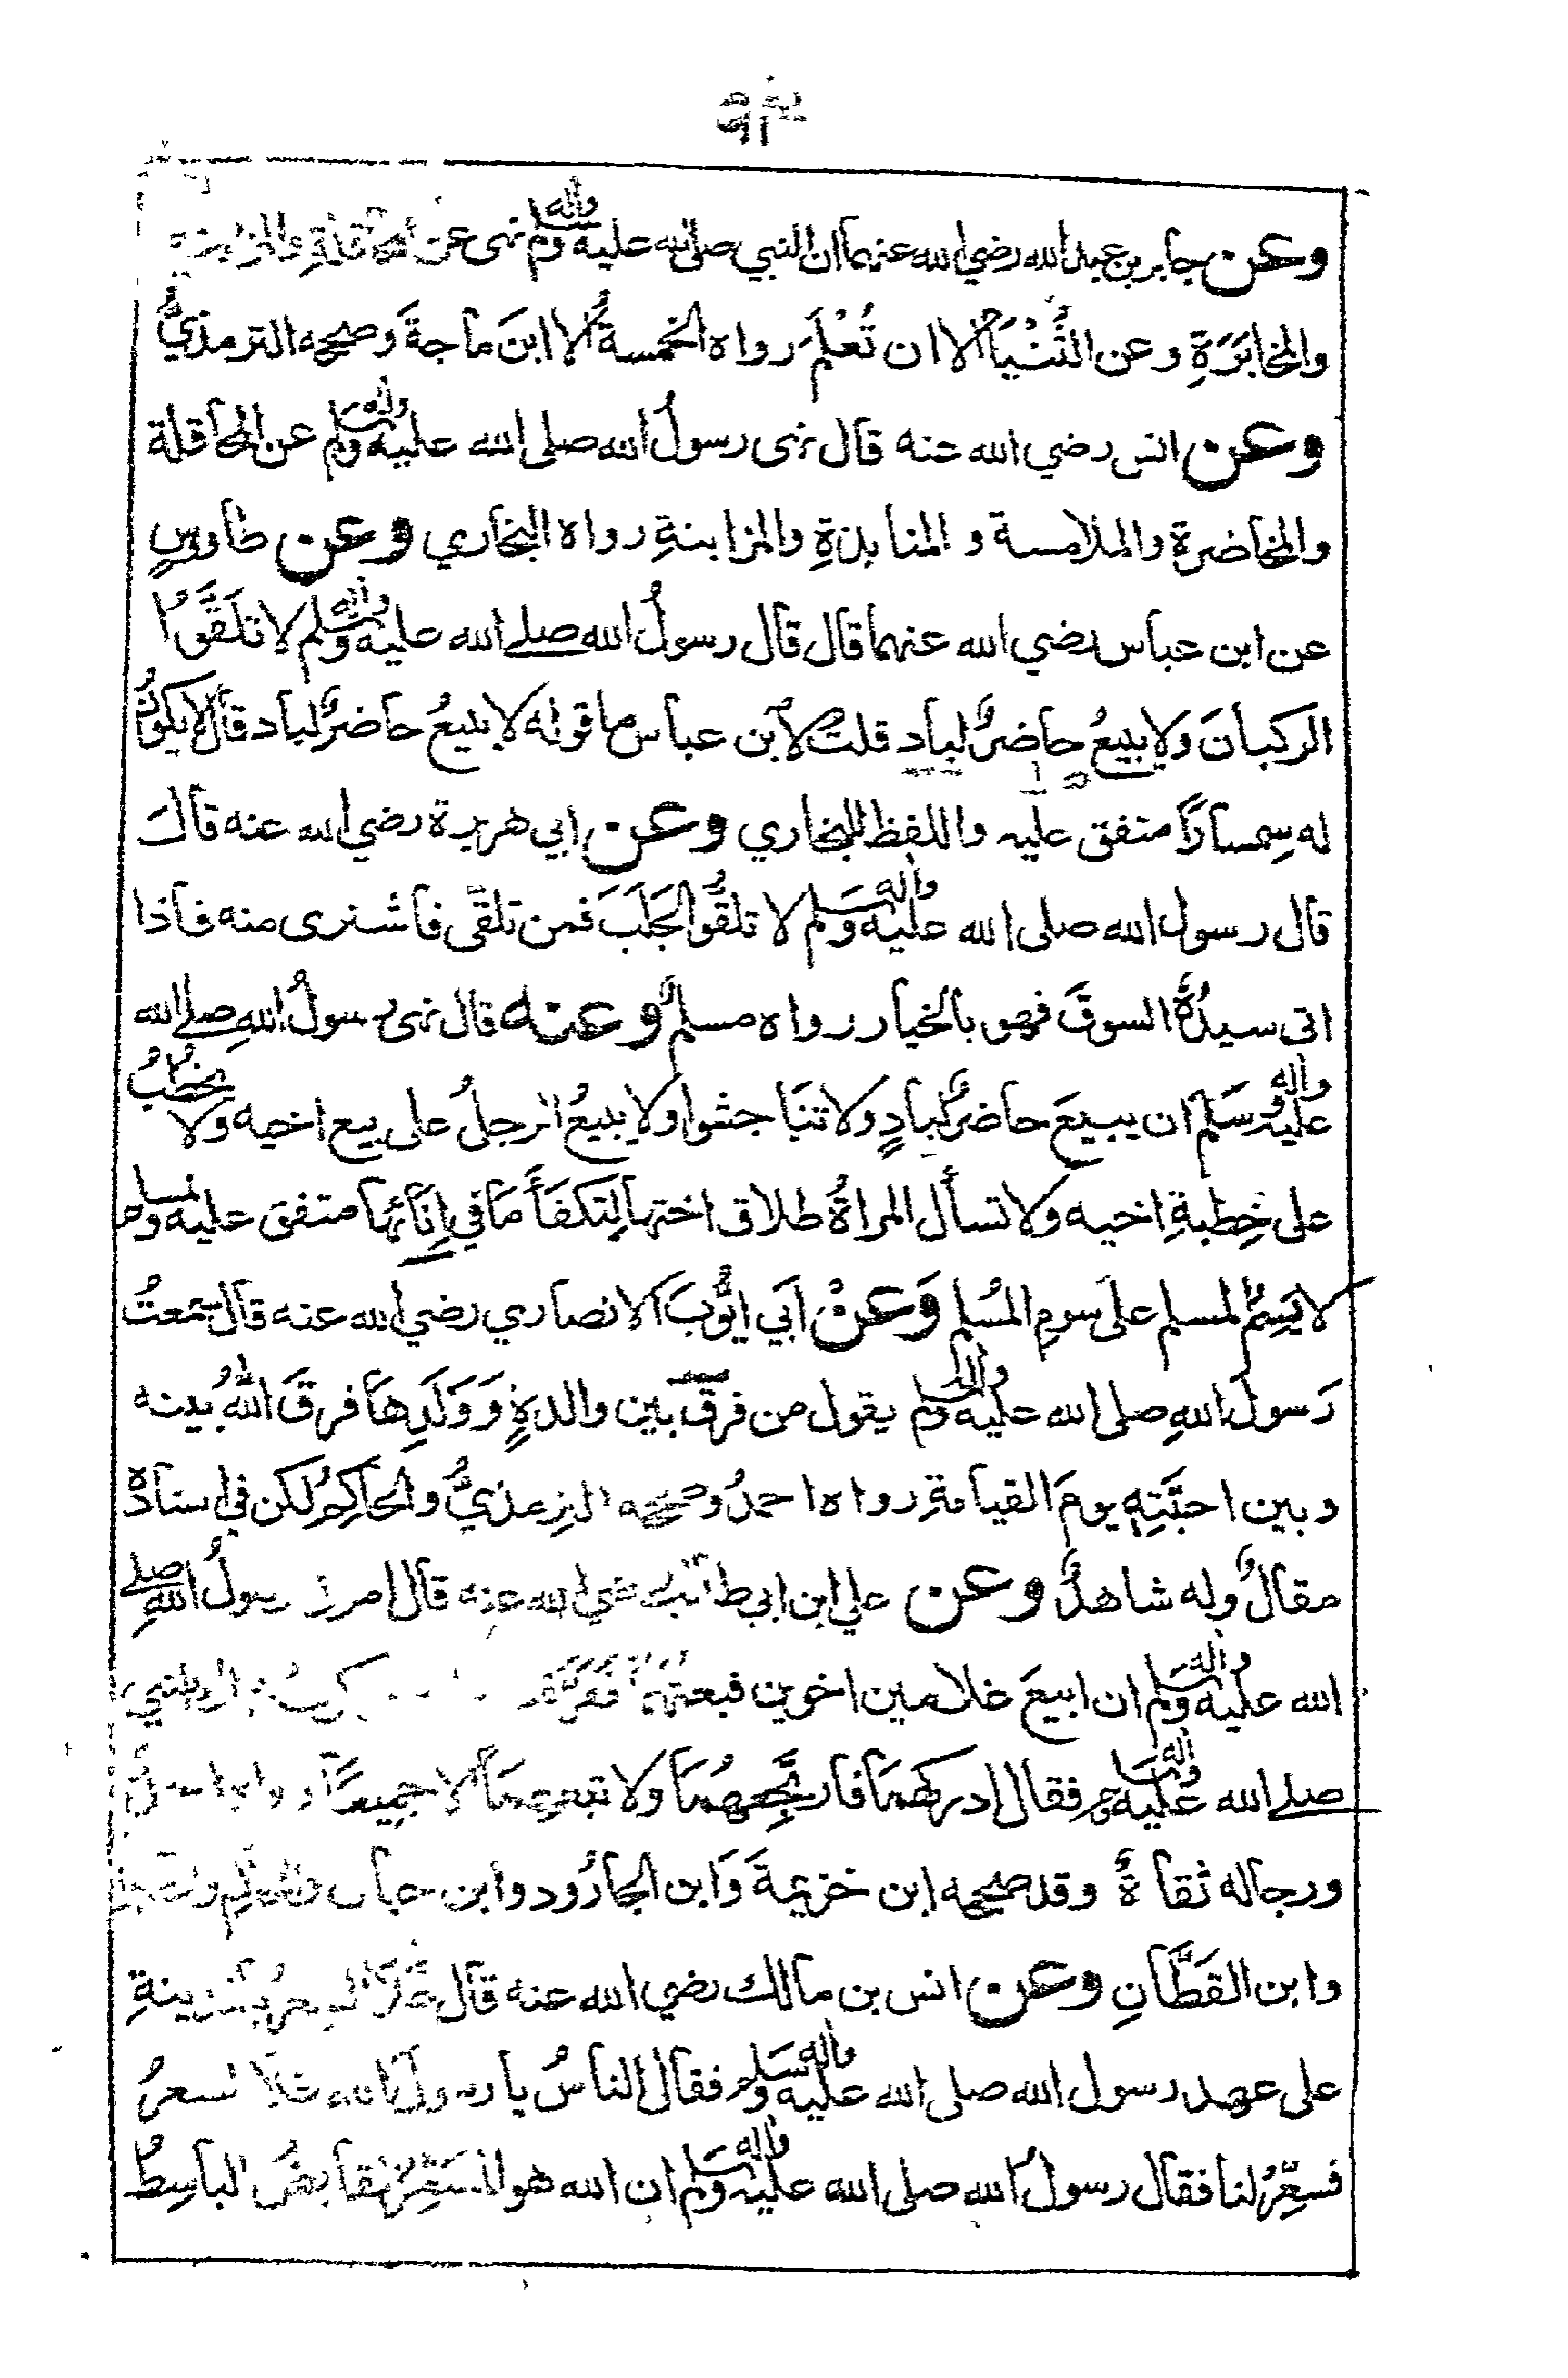 وعن جابر بن عبد الله رضي الله عنهما ان النبي صلى الله عليه واله وسلم نهى عن المحاقلةِ والمزابنة
والمخابَرَةِ وعن الثُّنْيَا الا ان تُعْلَمَ رواه الخمسةُ الا ابنَ ماجةَ وصححه الترمذيُّ
وعن انس رضي الله عنه قال نهى رسولُ الله صلى الله عليه واله وسلم عن المحاقلة
والمخاضرة والملامسة والمنابذةِ والمزابنةِ رواه البخاري وعن طاوسٍ
عن ابن عباس رضي الله عنهما قال قال رسولُ الله صلى الله عليه واله وسلم لا تلَقَّوُا
الركبانَ ولا يبيعُ حاضرٌ لباد قلت لابن عباس ما قوله لا يبيعُ حاضرٌ لباد قال لا يكونُ
له سِمسارًا متفق عليه واللفظ للبخاري وعن ابي هريرة رضي الله عنه قال
قال رسول الله صلى الله عليه واله وسلم لا تلقَّوُا الجَلَبَ فمن تلقّى فاشترى منه فاذا
اتى سيدُهُ السوقَ فهو بالخيار رواه مسلمٌ وعنه قال نهى رسولُ اللهِ صلى الله
عليه واله وسَلم ان يبيعَ حاضرٌ لبادٍ ولا تناجشوا ولا يبيعُ الرجلُ على بيع اخيه ولا يخطُبُ
على خِطبةِ اخيه ولا تسأل المراةُ طلاق اختها لِتكفَأَ مَا في اِنَائها متفق عليه ولمسلم
لا يَسِمُ المسلم علَى سومِ المسُلم وَعنْ اَبي ايُّوبَ الانصاري رضي الله عنه قال سَمعتُ
رَسولَ اللهِ صلى الله عليه واله وسلم يقول من فرَّق بين والدةٍ وَوَلَدِهَا فرقَ اللهُ بينه
وبين احبَّتِهِ يومَ القيامةِ رواه احمدُ وصححه الترمذيُّ والحاكِمُ لكن في اسنادهِ
مقالٌ وله شاهدٌ وعن علي ابن ابي طالب رضي الله عنه قال امرني رسولُ اللهِ صلى
الله عليه واله وسلم ان ابيعَ غلامين اخوين فبعتهما فَفرّقتُ فذكرتُ للنبي
صلى الله عليه واله وسلم فقال ادركهما فارتجِعهُمَا ولا تبعهما الا جميعًا رواه احمدُ
ورجاله ثقاةٌ وقد صححه ابن خزيمةَ وَابن الجارُود وابن حبان والحاكم
وابن القطَّانِ وعن انس بن مالك رضي الله عنه قال غَلَا السعرُ بالمدينةِ
على عهد رسول الله صلى الله عليه واله وسلم فقال الناسُ يا رسولَ الله غلا السعرُ
فسعِّرْ لنا فقال رسولُ الله صلى الله عليه واله وسلم ان الله هو المُسَعِّرُ القابضُ الباسِطُ